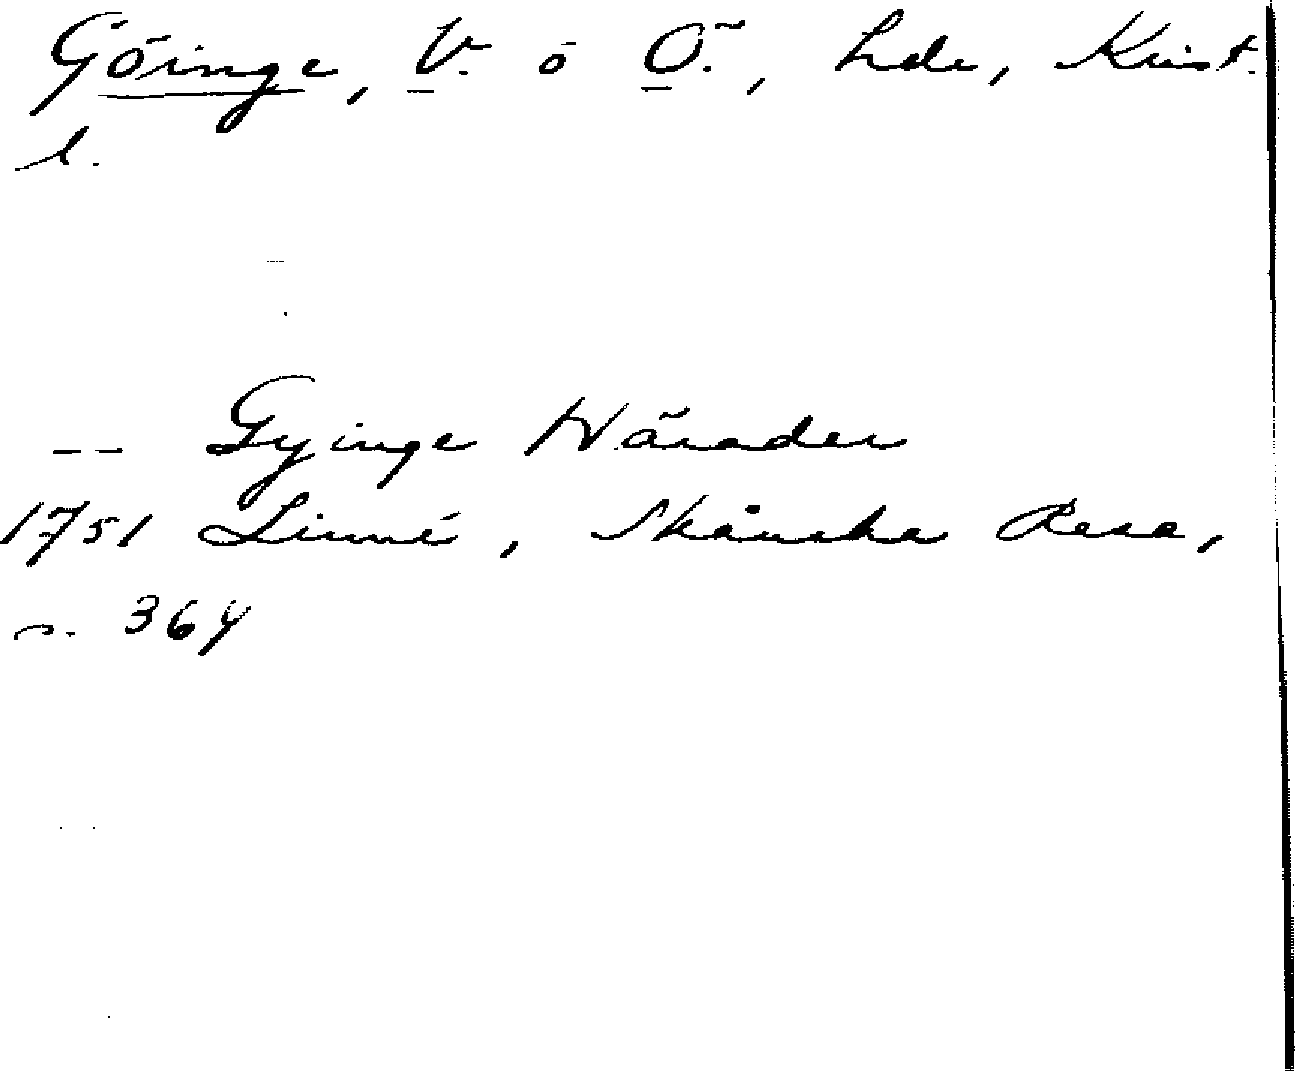 Göinge, V. o Ö., hde, Krist.
l.
-- Gyinge Härader
1751 Linné, Skånska Resa,
s. 364